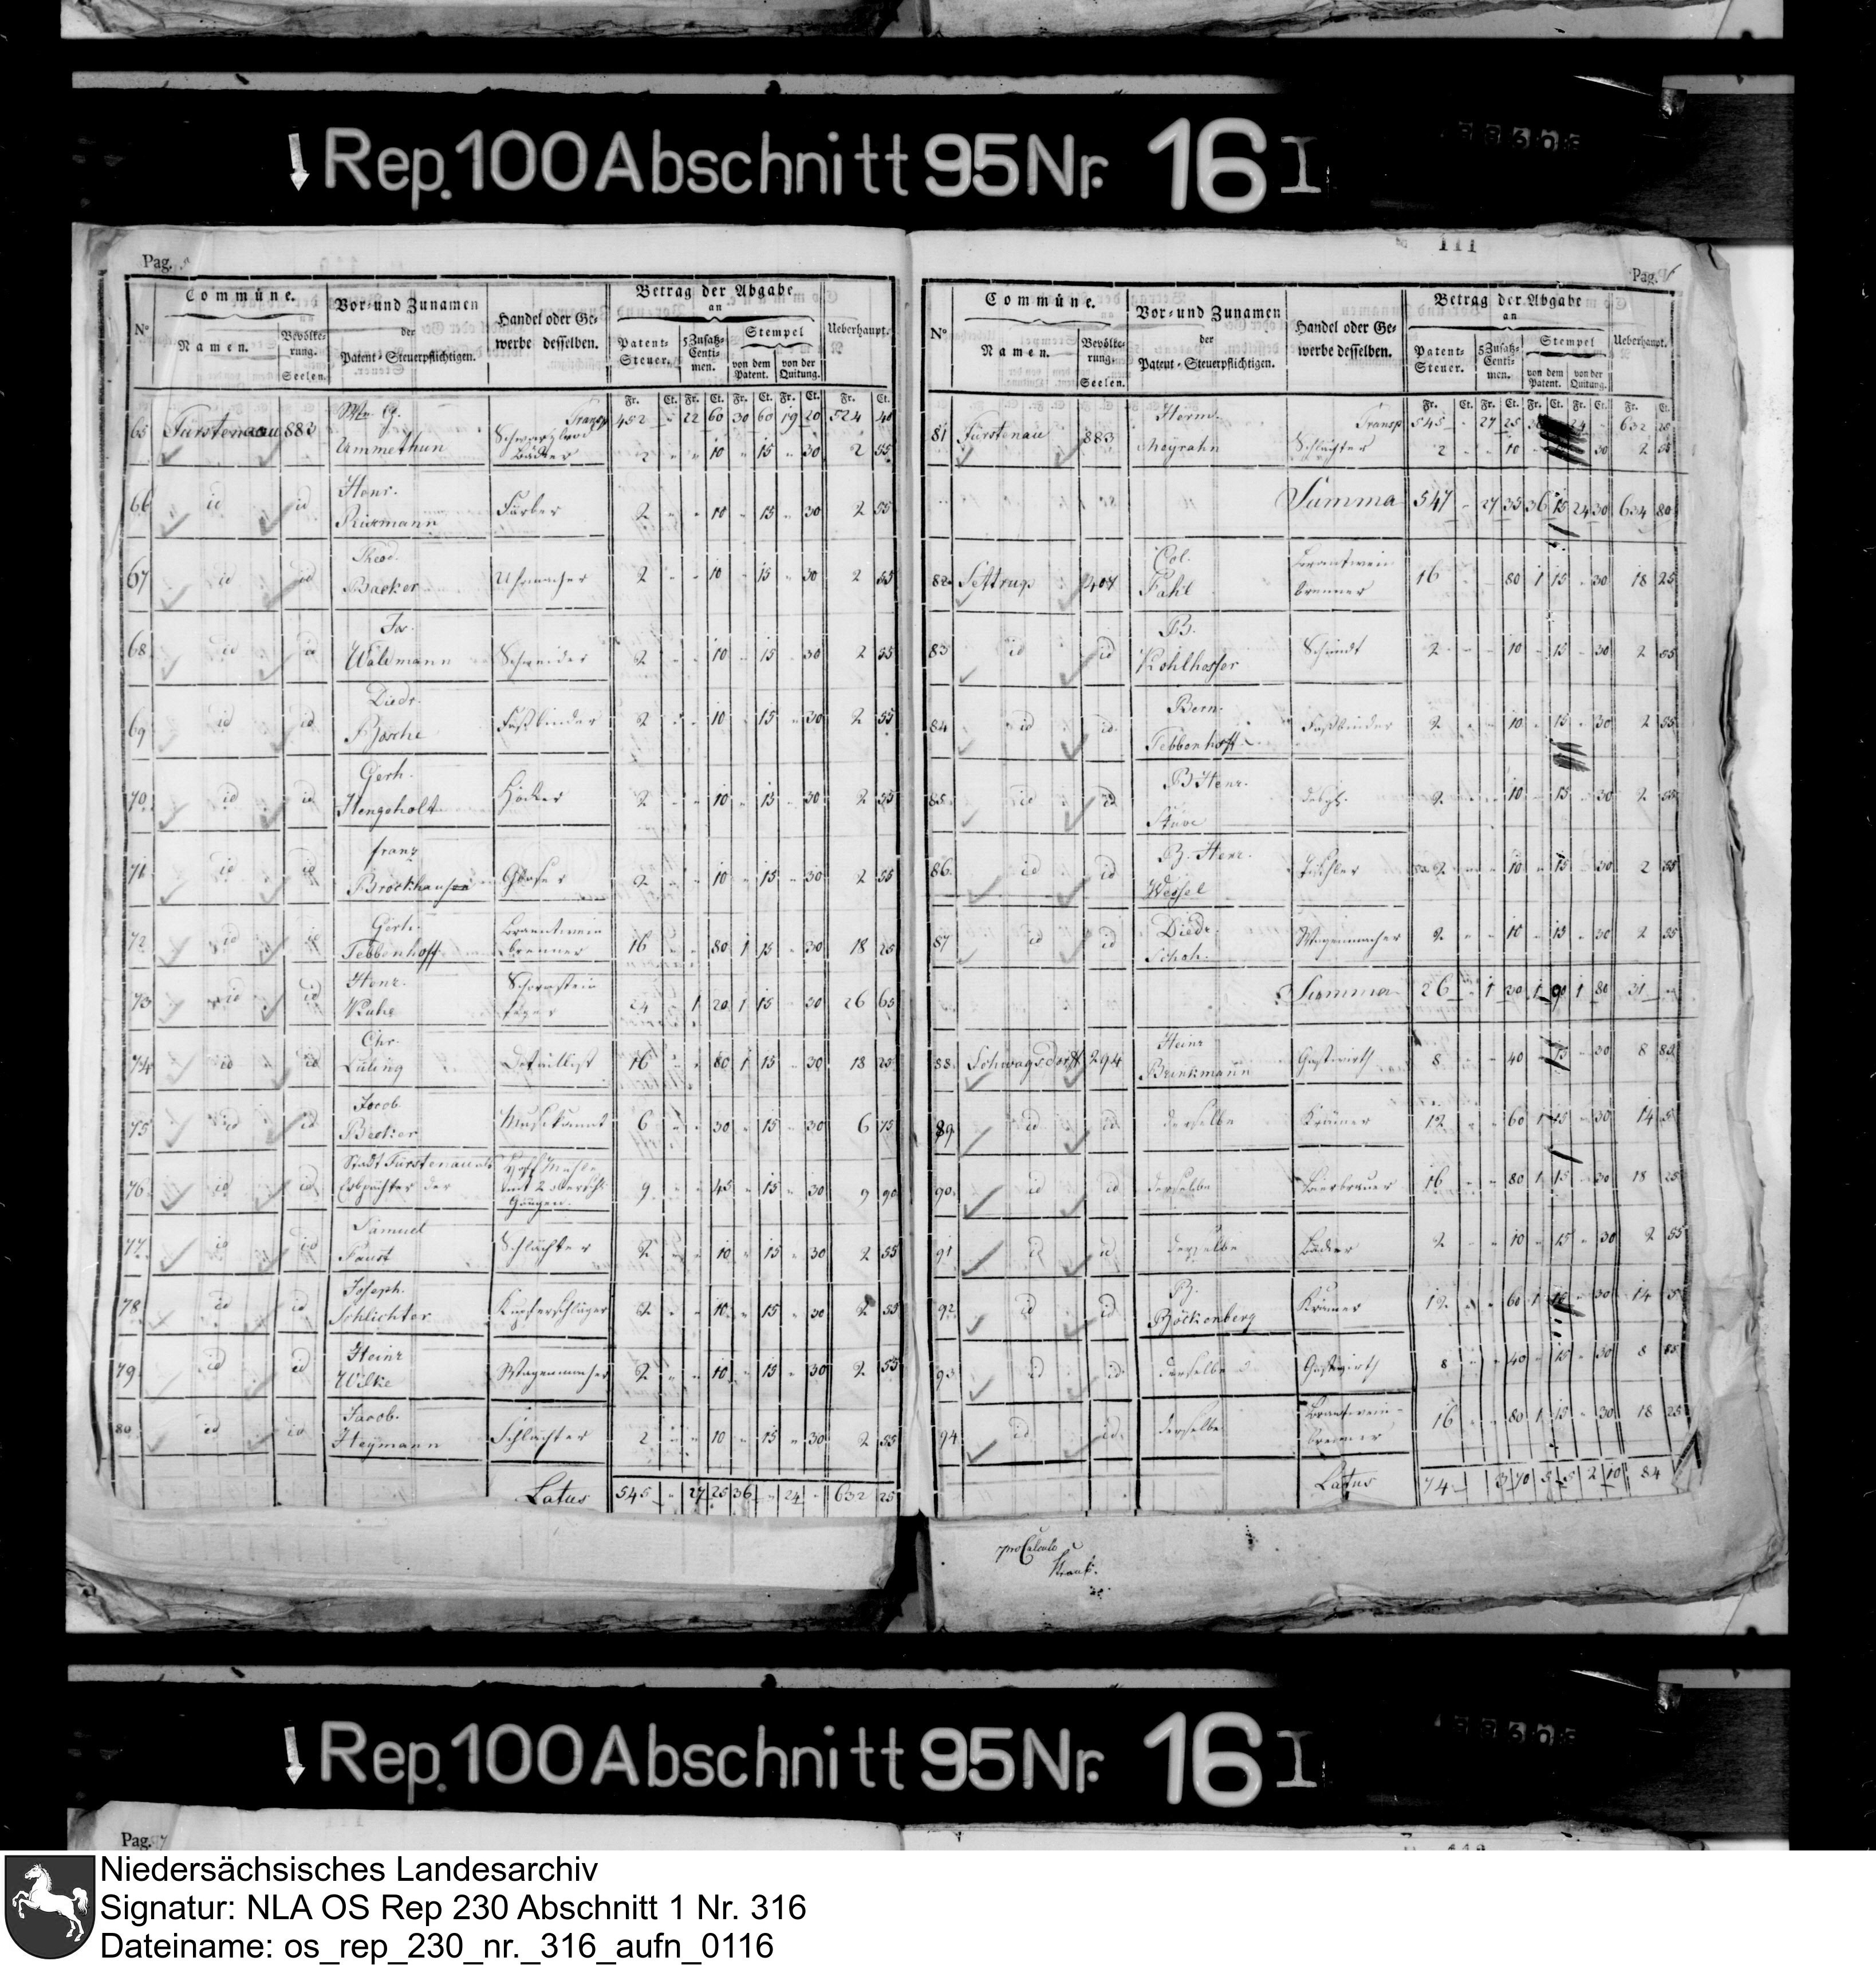 Rep. 100 Abschnitt 95 Nr. 16 I
Pag. 5
Commüne. Vor- und Zunamen der Patent-Steuerpflichtigen. Handel oder Gewerbe desselben. Betrag der Abgabe an Ueberhaupt.
N° Namen. Bevölkerung. Seelen. Patent-Steuer. 5 Zusatz-Centimen. Stempel von dem Patent. von der Quitung.
Fr. Ct. Fr. Ct. Fr. Ct. Fr. Ct. Fr. Ct.
Transp 452 - 22 60 30 60 19 20 524 40
65 Fürstenau 883 Ammethun Bäcker 2 " " 10 " 15 " 30 2 55
66 id id Henr. Färber 2 " " 10 " 15 " 30 2 55
67 id id Theod. Backer Uhrmacher 2 " " 10 " 15 " 30 2 55
68 id id Jos. Waldmann Schneider 2 " " 10 " 15 " 30 2 55
69 id id Diedr. Bosche Faßbinder 2 " " 10 " 15 " 30 2 55
70 id id Gerh. Hengeholt Höcker 2 " " 10 " 15 " 30 2 55
71 id id franz Brockhausen Glaser 2 " " 10 " 15 " 30 2 55
72 id id Gerh. Tebbenhoff Branntwein brenner 16 " " 80 1 15 " 30 18 25
73 id id Henr. Kuhe Schornstein feger 24 " 1 20 1 15 " 30 26 65
74 id id Chr. Lüling Detaillist 16 " " 80 1 15 " 30 18 25
75 id id Jacob Becker Musikant 6 " " 30 " 15 " 30 6 75
76 id id Stadt Fürstenau als Erbpächter der 9 " " 45 " 15 " 30 9 90
77 id id Samuel Faust Schlächter 2 " " 10 " 15 " 30 2 55
78 id id Joseph. Schlichter Kupferschläger 2 " " 10 " 15 " 30 2 55
79 id id Heinr Wilke Wagenmacher 2 " " 10 " 15 " 30 2 55
80 id id Jacob. Heymann Schlächter 2 " " 10 " 15 " 30 2 55
Latus 545 " 27 25 36 " 24 " 632 25
111
Pag. 6
Commüne. Vor- und Zunamen der Patent-Steuerpflichtigen. Handel oder Gewerbe desselben. Betrag der Abgabe an Ueberhaupt.
N° Namen. Bevölkerung. Seelen. Patent-Steuer. 5 Zusatz-Centimen. Stempel von dem Patent. von der Quitung.
Fr. Ct. Fr. Ct. Fr. Ct. Fr. Ct. Fr. Ct.
Transp 545 - 27 25 24 - 632 25
81 Fürstenau 883 Herm. Meyrahn Schlächter 2 " " 10 30 2 55
Summa 547 - 27 35 36 15 24 30 634 80
82 Settrup 404 Col. Fahl Brantwein brenner 16 80 1 15 " 30 18 25
83 id id B. Kohlhosser 2 " " 10 " 15 " 30 2 55
84 id id Bern. Tebbenhoff Faßbinder 2 " " 10 " 15 " 30 2 55
85 id id B Henr. Stüve desgl. 2 " " 10 " 15 " 30 2 55
86 id id B. Henr. Wessel Tischler 2 " " 10 " 15 " 30 2 55
87 id id Diedr. Schoh. Wagenmacher 2 " " 10 " 15 " 30 2 55
Summa 26 " 1 30 1 90 1 80 31 -
88 Schwagsdorff 294 Heinr Brinkmann Gastwirth 8 " " 40 " 15 " 30 8 85
89 id id derselbe Krämer 12 " " 60 1 15 " 30 14 5
90 id id derselbe Bierbrauer 16 " " 80 1 15 " 30 18 25
91 id id derselbe Bäcker 2 " " 10 " 15 " 30 2 55
92 id id B. Böckenberg Krämer 12 " " 60 1 15 " 30 14 5
93 id id derselbe Gastwirth 8 " " 40 " 15 " 30 8 85
94 id id derselbe Brantwein-brenner 16 " " 80 1 15 " 30 18 25
Latus 74 - 3 70 5 5 2 10 84
pro Calculo
Rep. 100 Abschnitt 95 Nr. 16 I
Pag. 7
Niedersächsisches Landesarchiv
Signatur: NLA OS Rep 230 Abschnitt 1 Nr. 316
Dateiname: os_rep_230_nr._316_aufn_0116